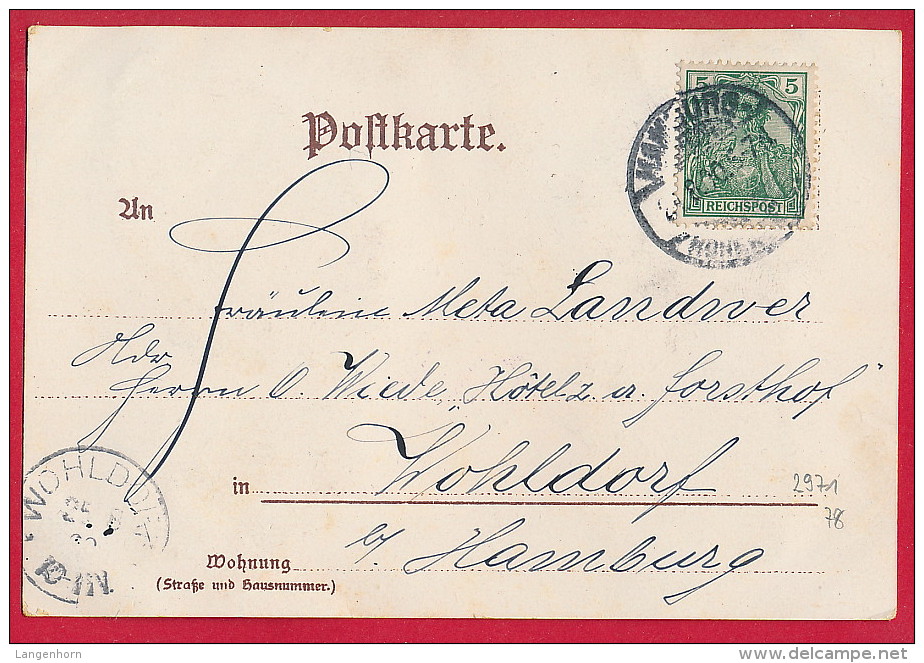 Postkarte.
5 5
REICHSPOST
HAMBURG
An
Fräulein Meta Landwer
Adr
Herrn O. Wiede „Hôtel z. a. Forsthof"
in Wohldorf
b/ Hamburg
Wohnung
(Straße und Hausnummer.)
WOHLDORF
10-11N.
2971
78
Langenhorn
www.delcampe.net